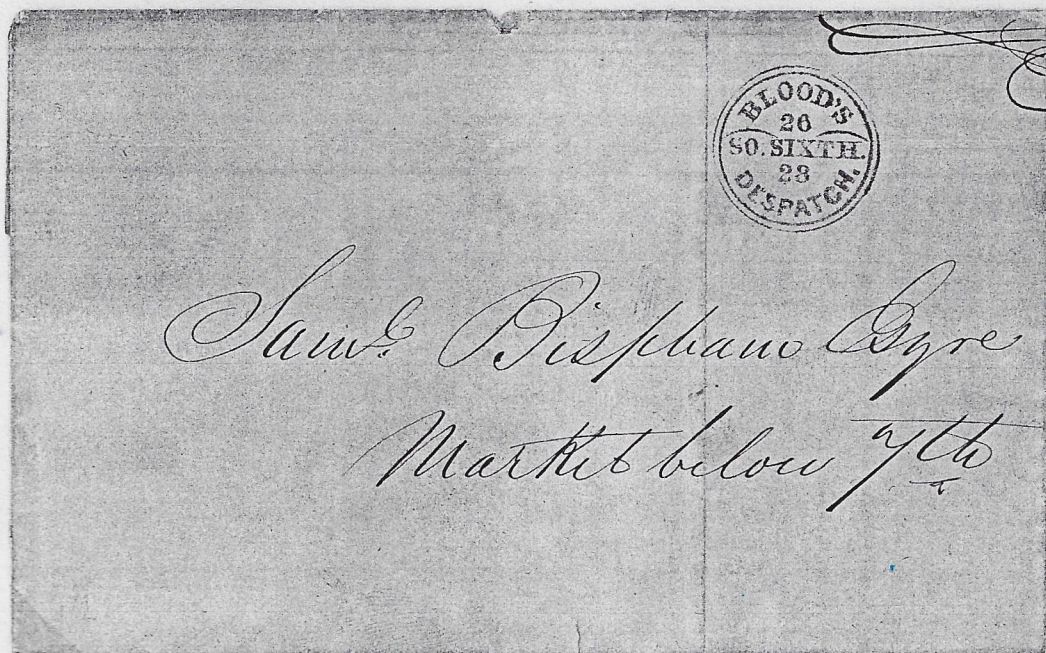 BLOOD'S
26
SO. SIXTH.
28
DESPATCH.
Saml. Bispham Esqre
Market below 7th